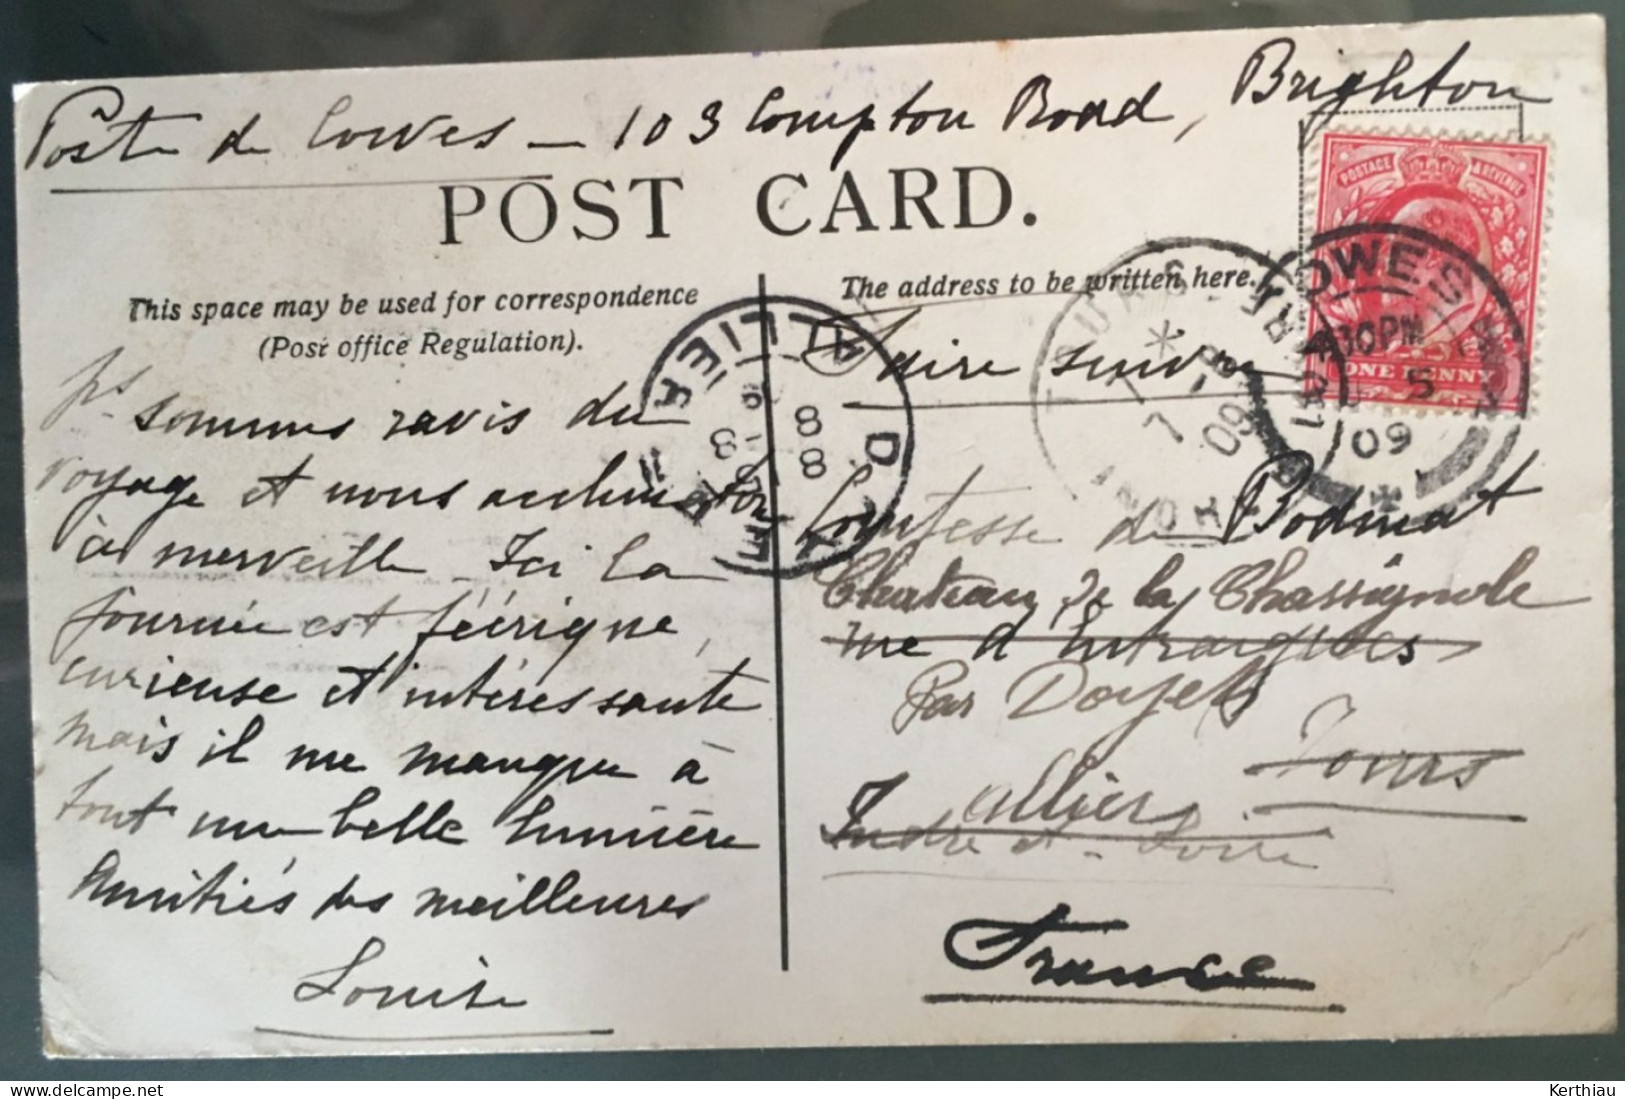 Poste de Cowes — 103 Compton Road, Brighton
POST CARD.
This space may be used for correspondence
(Post office Regulation).
The address to be written here.
Faire suivre
sommes ravis du
voyage et nous
à merveille. Ici la
journée est féérique,
curieuse et intéressante
mais il me manque à
tout une belle lumière
Amitiés des meilleures
Louise
Comtesse de Bodinat
Chateau de la Chassignole
rue d'Entraigues
Par Doyet
Tours
Allier
Indre et-Loire
France
POSTAGE & REVENUE
ONE PENNY
COWES
30PM
5
09
TOURS
*
7 - 8
09
DOYET
ALLIER
8 - 8
Kerthiau
delcampe.net